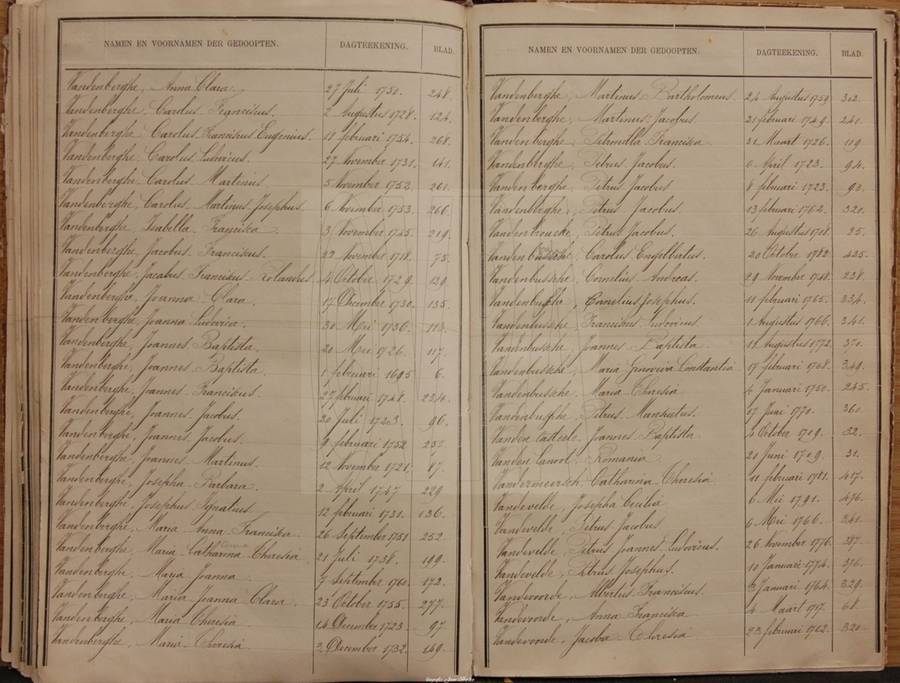 NAMEN EN VOORNAMEN DER GEDOOPTEN. DAGTEEKENING. BLAD.
Vandenberghe, Anna Clara. 27 Juli 1750. 248.
Vandenberghe, Carolus Franciscus. 2 Augustus 1728. 124.
Vandenberghe, Carolus Franciscus Eugenius. 18 februari 1754. 268.
Vandenberghe, Carolus Ludovicus. 27 November 1731. 141.
Vandenberghe, Carolus Martinus. 5 November 1752. 261.
Vandenberghe, Carolus Martinus Josephus. 6 November 1753. 266.
Vandenberghe, Isabella Francisca. 3 November 1745. 219.
Vandenberghe, Jacobus Franciscus. 22 November 1718. 75.
Vandenberghe, Jacobus Franciscus Rolandus. 4 October 1729. 129.
Vandenberghe, Joanna Clara. 17 December 1730. 135.
Vandenberghe, Joanna Ludovica. 30 Mei 1736.
Vandenberghe, Joannes Baptista. 20 Mei 1726. 117.
Vandenberghe, Joannes Baptista. 1 februari 1695 6.
Vandenberghe, Joannes Franciscus. 27 februari 1748. 234.
Vandenberghe, Joannes Jacobus. 20 Juli 1723. 96.
Vandenberghe, Joannes Jacobus. februari 1752
Vandenberghe, Joannes Martinus. 12 November 1721. 87.
Vandenberghe, Josepha Barbara. 2 April 1747 229
Vandenberghe, Josephus Ignatius. 12 februari 1731. 136.
Vandenberghe, Maria Anna Francisca. 26 September 1751 252
Vandenberghe, Maria Catharina Theresia. 21 Juli 1738. 199.
Vandenberghe, Maria Joanna. September 1760. 172.
Vandenberghe, Maria Joanna Clara. 23 October 1755. 277.
Vandenberghe, Maria Theresia 14 December 1723. 97
Vandenberghe, Maria Theresia 2 December 1732. 149.
NAMEN EN VOORNAMEN DER GEDOOPTEN. DAGTEEKENING. BLAD.
Vandenberghe, Martinus Bartholomeus. 24 Augustus 1759 302.
Vandenberghe, Martinus Jacobus. 21 februari 1749. 241.
Vandenberghe, Petronilla Francisca 31 Maart 1726. 119
Vandenberghe, Petrus Jacobus. 6 April 1723. 94.
Vandenberghe, Petrus Jacobus 8 februari 1723. 93.
Vandenberghe, Petrus Jacobus. 13 februari 1762. 320.
Vandenbroucke, Petrus Jacobus. 26 Augustus 1708. 25.
Vandenbussche, Carolus Engelbertus. 20 October 1782 425.
Vandenbussche, Cornelius Andreas. 29 November 1748. 238.
Vandenbussche, Cornelius Josephus. 11 februari 1765. 334.
Vandenbussche, Franciscus Ludovicus. 1 Augustus 1766. 341.
Vandenbussche, Joannes Baptista. 19 Augustus 1772. 370.
Vandenbussche, Maria Genoveva Constantia 17 februari 1768. 349.
Vandenbussche, Maria Theresia 4 Januari 1750. 245.
Vandenbussche, Petrus Mansuetus. 17 Juni 1770. 360.
Vanden Casteele, Joannes Baptista. October 1709. 32.
Vanden Romania 20 Juni 1709. 31.
Vandermeersch, Catharina Theresia 11 februari 1781. 417.
Vandevelde, Josepha Cecilia 6 Mei 1791. 476.
Vandevelde, Petrus Jacobus 6 Mei 1766. 241.
Vandevelde, Petrus Joannes Ludovicus. 26 November 1776. 397.
Vandevelde, Petrus Josephus. 10 Januari 1774. 376.
Vandevoorde, Albertus Franciscus. Januari 1764. 329.
Vandevoorde, Anna Francisca 4 Maart 1717. 68.
Vandevoorde, Jacoba Theresia 23 februari 1762. 320.